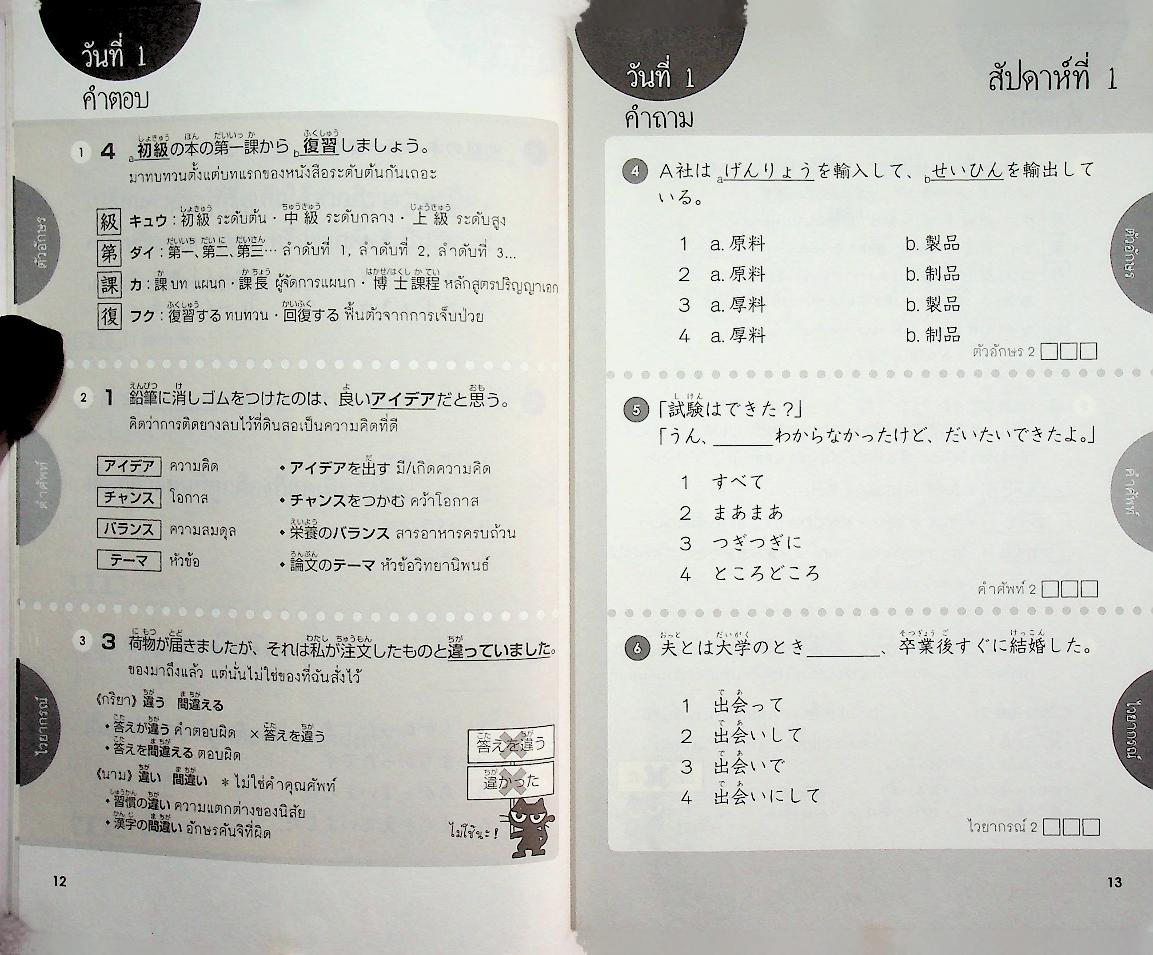 วันที่ 1
คำตอบ
1 4 a初級の本の第一課から b復習しましょう。
มาทบทวนตั้งแต่บทแรกของหนังสือระดับต้นกันเถอะ
級 キュウ : 初級 ระดับต้น・中級 ระดับกลาง・上級 ระดับสูง
第 ダイ : 第一、第二、第三… ลำดับที่ 1, ลำดับที่ 2, ลำดับที่ 3...
課 カ : 課 บท แผนก・課長 ผู้จัดการแผนก・博士課程 หลักสูตรปริญญาเอก
復 フク : 復習する ทบทวน・回復する ฟื้นตัวจากการเจ็บป่วย
ตัวอักษร
2 1 鉛筆に消しゴムをつけたのは、良いアイデアだと思う。
คิดว่าการติดยางลบไว้ที่ดินสอเป็นความคิดที่ดี
アイデア ความคิด ・アイデアを出す มี/เกิดความคิด
チャンス โอกาส ・チャンスをつかむ คว้าโอกาส
バランス ความสมดุล ・栄養のバランス สารอาหารครบถ้วน
テーマ หัวข้อ ・論文のテーマ หัวข้อวิทยานิพนธ์
คำศัพท์
3 3 荷物が届きましたが、それは私が注文したものと違っていました。
ของมาถึงแล้ว แต่นั่นไม่ใช่ของที่ฉันสั่งไว้
《กริยา》違う 間違える
・答えが違う คำตอบผิด ×答えを違う
・答えを間違える ตอบผิด
《นาม》違い 間違い *ไม่ใช่คำคุณศัพท์
・習慣の違い ความแตกต่างของนิสัย
・漢字の間違い อักษรคันจิที่ผิด
答えを違う
違かった
ไม่ใช่นะ!
ไวยากรณ์
12
วันที่ 1
สัปดาห์ที่ 1
คำถาม
4 A社は aげんりょうを輸入して、bせいひんを輸出して
いる。
1 a. 原料 b. 製品
2 a. 原料 b. 制品
3 a. 厚料 b. 製品
4 a. 厚料 b. 制品
ตัวอักษร 2 □□□
ตัวอักษร
5 「試験はできた？」
「うん、______わからなかったけど、だいたいできたよ。」
1 すべて
2 まあまあ
3 つぎつぎに
4 ところどころ
คำศัพท์ 2 □□□
คำศัพท์
6 夫とは大学のとき______、卒業後すぐに結婚した。
1 出会って
2 出会いして
3 出会いで
4 出会いにして
ไวยากรณ์ 2 □□□
ไวยากรณ์
13